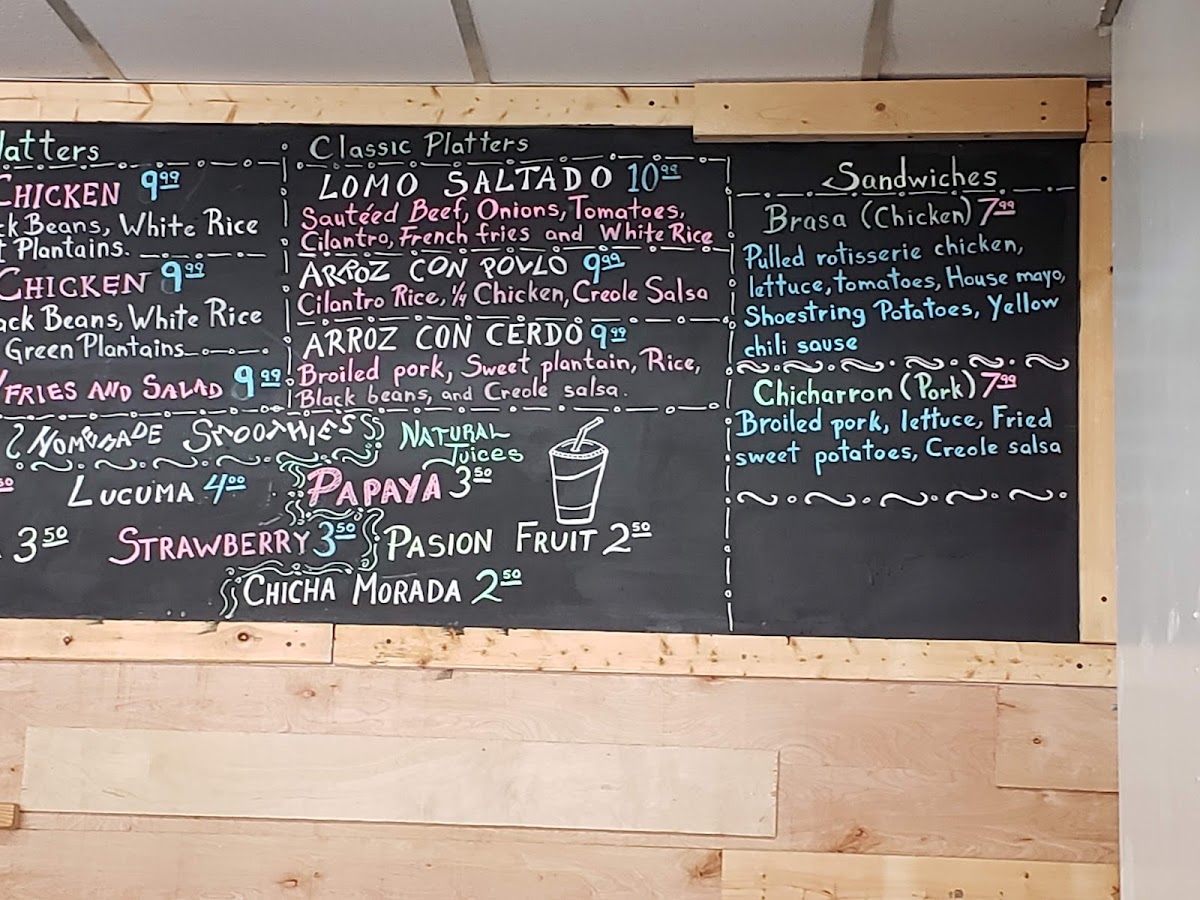 Chicken 9.99
Beans, White Rice
Plantains.
Chicken 9.99
Beans, White Rice
Green Plantains
Fries and Salad 9.99
Classic Platters
LOMO SALTADO 10.99
Sautéed Beef, Onions, Tomatoes,
Cilantro, French fries and White Rice
ARROZ CON POLLO 9.99
Cilantro Rice, 1/4 Chicken, Creole Salsa
ARROZ CON CERDO 9.99
Broiled pork, Sweet plantain, Rice,
Black beans, and Creole salsa.
Sandwiches
Brasa (Chicken) 7.99
Pulled rotisserie chicken,
lettuce, tomatoes, House mayo,
Shoestring Potatoes, Yellow
chili sause
Chicharron (Pork) 7.99
Broiled pork, lettuce, Fried
sweet potatoes, Creole salsa
SMOOTHIES
LUCUMA 4.00
3.50
STRAWBERRY 3.50
NATURAL
JUICES
PAPAYA 3.50
PASION FRUIT 2.50
CHICHA MORADA 2.50